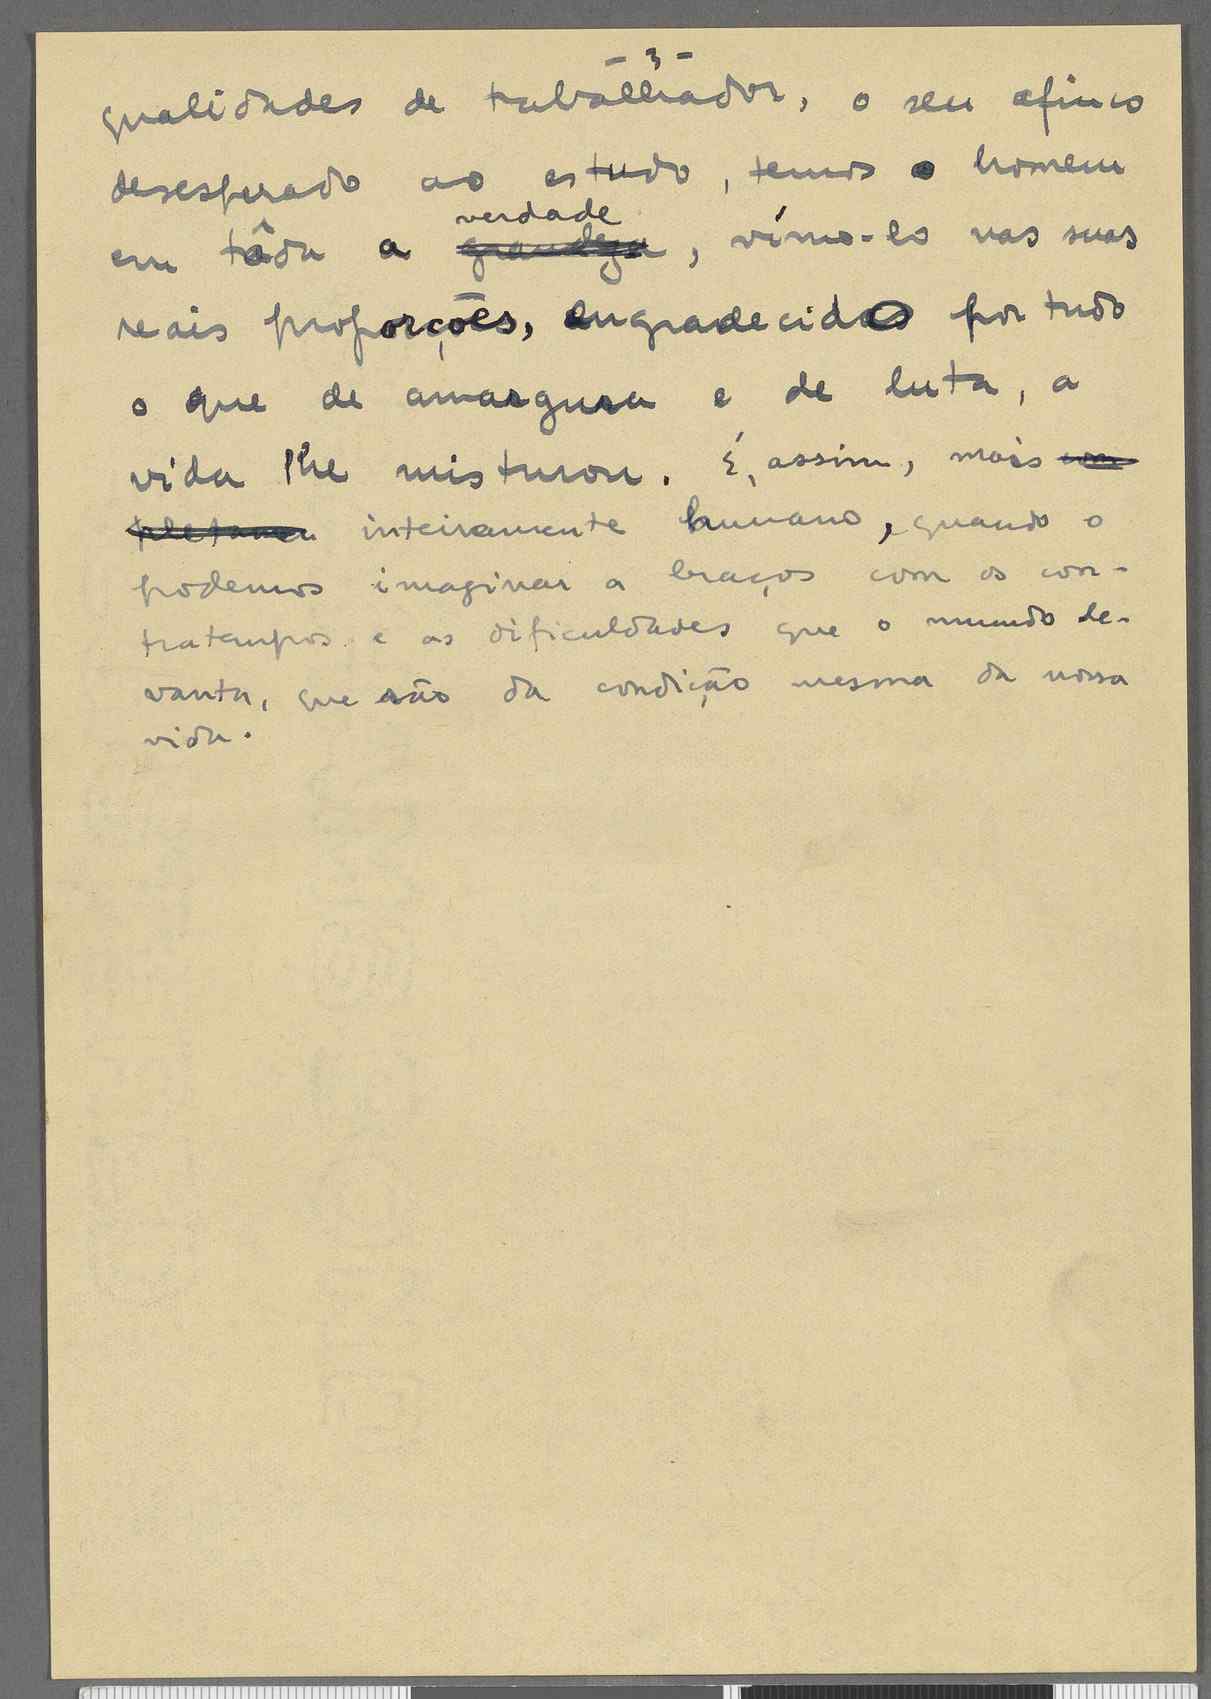 - 3 -
qualidades de trabalhador, o seu afinco
desesperado ao estudo, temos o homem
verdade
em tôda a grandeza, vímo-lo nas suas
reais proporções, engradecido por tudo
o que de amargura e de luta, a
vida lhe misturou. É, assim, mais com
pletamen inteiramente humano, quando o
podemos imaginar a braços com os con-
tratempos e as dificuldades que o mundo le-
vanta, que são da condição mesma da nossa
vida.